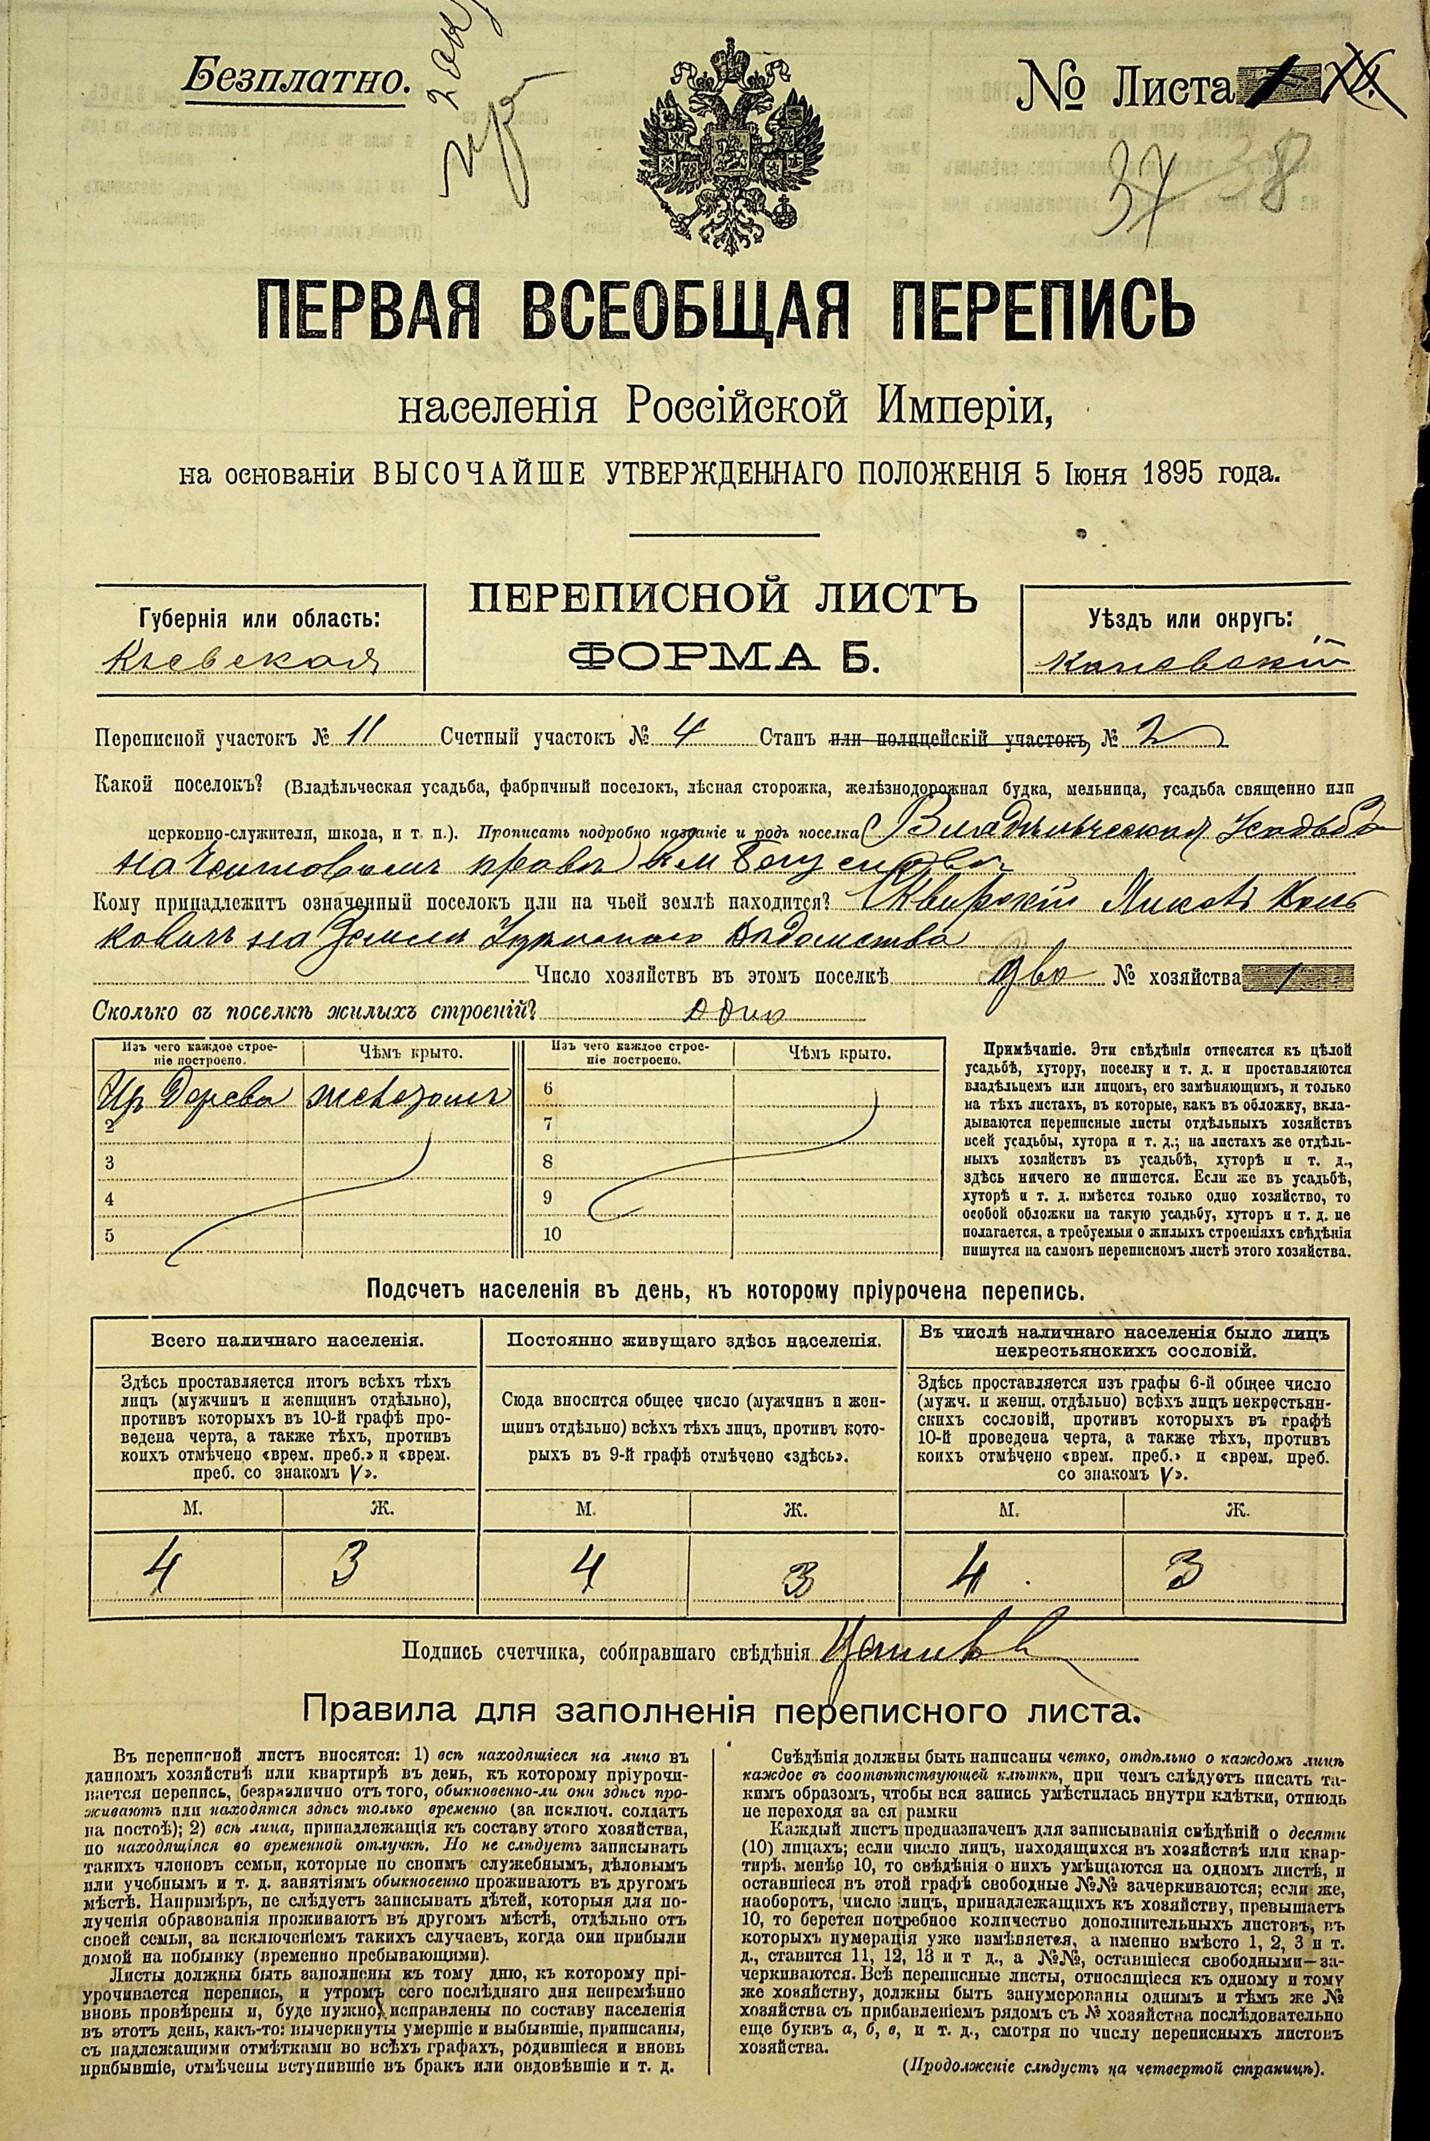 Безплатно.
№ Листа 1
37 38
ПЕРВАЯ ВСЕОБЩАЯ ПЕРЕПИСЬ
населенія Россійской Имперіи,
на основаніи ВЫСОЧАЙШЕ УТВЕРЖДЕННАГО ПОЛОЖЕНІЯ 5 Іюня 1895 года.
Губернія или область:
Кіевская
ПЕРЕПИСНОЙ ЛИСТЪ
ФОРМА Б.
Уѣздъ или округъ:
Каневскій
Переписной участокъ № 11 Счетный участокъ № 4 Станъ или полицейскій участокъ, № 2
Какой поселокъ? (Владѣльческая усадьба, фабричный поселокъ, лѣсная сторожка, желѣзнодорожная будка, мельница, усадьба священно или
церковно-служителя, школа, и т. п.). Прописать подробно названіе и родъ поселка Владѣльческая усадьба
на чиншовомъ правѣ
Кому принадлежитъ означенный поселокъ или на чьей землѣ находится? Сквирскій
на земли Удѣльного вѣдомства
Число хозяйствъ въ этомъ поселкѣ два № хозяйства 1
Сколько въ поселкѣ жилыхъ строеній? одно
Изъ чего каждое строе-
ніе построено.
Чѣмъ крыто.
Изъ чего каждое строе-
ніе построено.
Чѣмъ крыто.
Изъ Дерева желѣзомъ 6
2 7
3 8
4 9
5 10
Примѣчаніе. Эти свѣдѣнія относятся къ цѣлой
усадьбѣ, хутору, поселку и т. д. и проставляются
владѣльцемъ или лицомъ, его замѣняющимъ, и только
на тѣхъ листахъ, въ которые, какъ въ обложку, вкла-
дываются переписные листы отдѣльныхъ хозяйствъ
всей усадьбы, хутора и т. д.; на листахъ же отдѣль-
ныхъ хозяйствъ въ усадьбѣ, хуторѣ и т. д.,
здѣсь ничего не пишется. Если же въ усадьбѣ,
хуторѣ и т. д. имѣется только одно хозяйство, то
особой обложки на такую усадьбу, хуторъ и т. д. не
полагается, а требуемыя о жилыхъ строеніяхъ свѣдѣнія
пишутся на самомъ переписномъ листѣ этого хозяйства.
Подсчетъ населенія въ день, къ которому пріурочена перепись.
Всего наличнаго населенія.
Здѣсь проставляется итогъ всѣхъ тѣхъ
лицъ (мужчинъ и женщинъ отдѣльно),
противъ которыхъ въ 10-й графѣ про-
ведена черта, а также тѣхъ, противъ
коихъ отмѣчено «врем. преб.» и «врем.
преб. со знакомъ V».
Постоянно живущаго здѣсь населенія.
Сюда вносится общее число (мужчинъ и жен-
щинъ отдѣльно) всѣхъ тѣхъ лицъ, противъ кото-
рыхъ въ 9-й графѣ отмѣчено «здѣсь».
Въ числѣ наличнаго населенія было лицъ
некрестьянскихъ сословій.
Здѣсь проставляется изъ графы 6-й общее число
(мужч. и женщ. отдѣльно) всѣхъ лицъ некрестьян-
скихъ сословій, противъ которыхъ въ графѣ
10-й проведена черта, а также тѣхъ, противъ
коихъ отмѣчено «врем. преб.» и «врем. преб.
со знакомъ V».
М. Ж. М. Ж. М. Ж.
4 3 4 3 4 3
Подпись счетчика, собиравшаго свѣдѣнія
Правила для заполненія переписного листа.
Въ переписной листъ вносятся: 1) всѣ находящіеся на лицо въ
данномъ хозяйствѣ или квартирѣ въ день, къ которому пріурочи-
вается перепись, безразлично отъ того, обыкновенно-ли они здѣсь про-
живаютъ или находятся здѣсь только временно (за исключ. солдатъ
на постоѣ); 2) всѣ лица, принадлежащія къ составу этого хозяйства,
но находящіяся во временной отлучкѣ. Но не слѣдуетъ записывать
такихъ членовъ семьи, которые по своимъ служебнымъ, дѣловымъ
или учебнымъ и т. д. занятіямъ обыкновенно проживаютъ въ другомъ
мѣстѣ. Напримѣръ, не слѣдуетъ записывать дѣтей, которыя для по-
лученія образованія проживаютъ въ другомъ мѣстѣ, отдѣльно отъ
своей семьи, за исключеніемъ такихъ случаевъ, когда они прибыли
домой на побывку (временно пребывающими).
Листы должны быть заполнены къ тому дню, къ которому прі-
урочивается перепись, и утромъ сего послѣдняго дня непремѣнно
вновь провѣрены и, буде нужно, исправлены по составу населенія
въ этотъ день, какъ-то: вычеркнуты умершіе и выбывшіе, приписаны,
съ надлежащими отмѣтками во всѣхъ графахъ, родившіеся и вновь
прибывшіе, отмѣчены вступившіе въ бракъ или овдовѣвшіе и т. д.
Свѣдѣнія должны быть написаны четко, отдѣльно о каждомъ лицѣ
каждое въ соотвѣтствующей клѣткѣ, при чемъ слѣдуетъ писать та-
кимъ образомъ, чтобы вся запись умѣстилась внутри клѣтки, отнюдь
не переходя за ея рамки
Каждый листъ предназначенъ для записыванія свѣдѣній о десяти
(10) лицахъ; если число лицъ, находящихся въ хозяйствѣ или квар-
тирѣ, менѣе 10, то свѣдѣнія о нихъ умѣщаются на одномъ листѣ, и
оставшіеся въ этой графѣ свободные №№ зачеркиваются; если же,
наоборотъ, число лицъ, принадлежащихъ къ хозяйству, превышаетъ
10, то берется потребное количество дополнительныхъ листовъ, въ
которыхъ нумерація уже измѣняется, а именно вмѣсто 1, 2, 3 и т.
д., ставится 11, 12, 13 и т д., а №№, оставшіеся свободными—за-
черкиваются. Всѣ переписные листы, относящіеся къ одному и тому
же хозяйству, должны быть занумерованы однимъ и тѣмъ же №
хозяйства съ прибавленіемъ рядомъ съ № хозяйства послѣдовательно
еще буквъ а, б, в, и т. д., смотря по числу переписныхъ листовъ
хозяйства.
(Продолженіе слѣдуетъ на четвертой страницѣ).